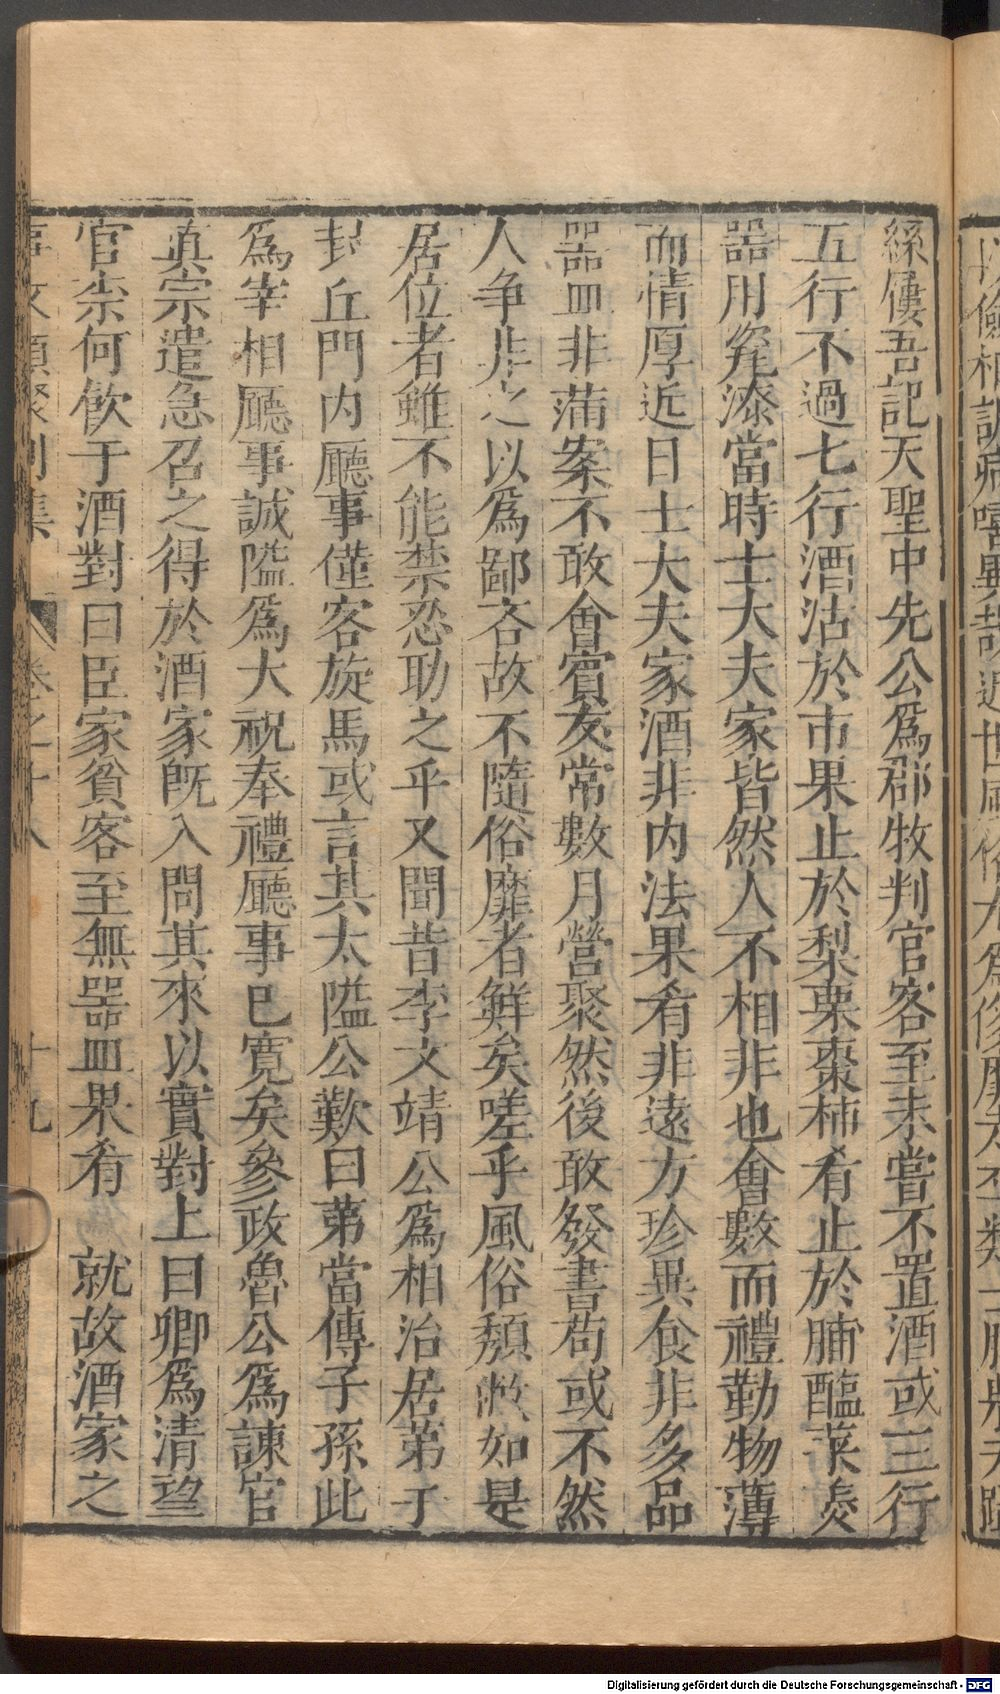 絲屨吾記天聖中先公爲郡牧判官客至未嘗不置酒或三行
五行不過七行酒沽於市果止於梨栗棗柿肴止於脯醢菜羹
器用甆漆當時士大夫家皆然人不相非也會數而禮勤物薄
而情厚近日士大夫家酒非内法果肴非遠方珍異食非多品
器皿非滿案不敢會賓友常數月營聚然後敢發書苟或不然
人争非之以爲鄙吝故不隨俗靡者鮮矣嗟乎風俗頽弊如是
居位者雖不能禁忍助之乎又聞昔李文靖公爲相治居第于
封丘門内廳事僅客旋馬或言其太隘公歎曰第當傳子孫此
爲宰相廳事誠隘爲大祝奉禮廳事已寛矣參政魯公爲諫官
真宗遣急召之得於酒家旣入問其來以實對上曰卿爲清望
官柰何飲于酒對曰臣家貧客至無器皿果肴 就故酒家之
事文類聚别集 卷之十八 十九
Digitalisierung gefördert durch die Deutsche Forschungsgemeinschaft - DFG